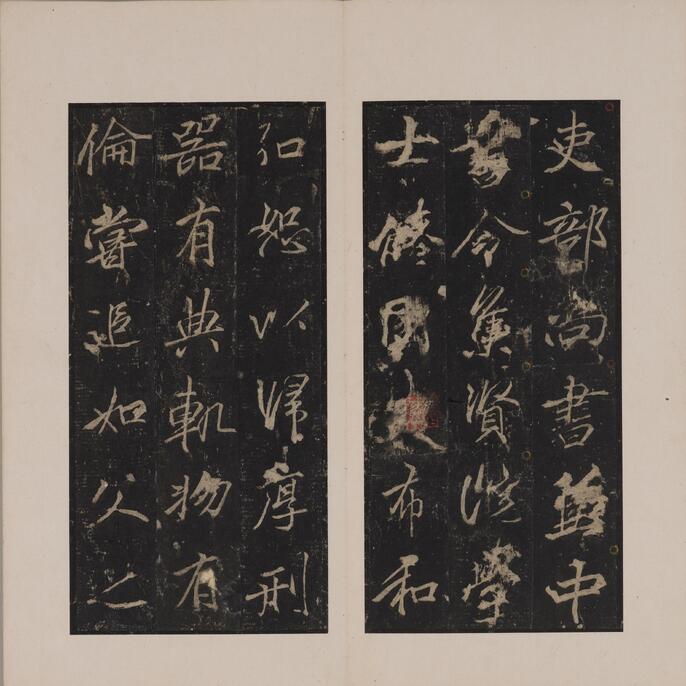 吏部尚書兼中
書令集賢院學
士脩國史布和
弘恕以歸厚刑
器有典軌物有
倫嘗追如父之